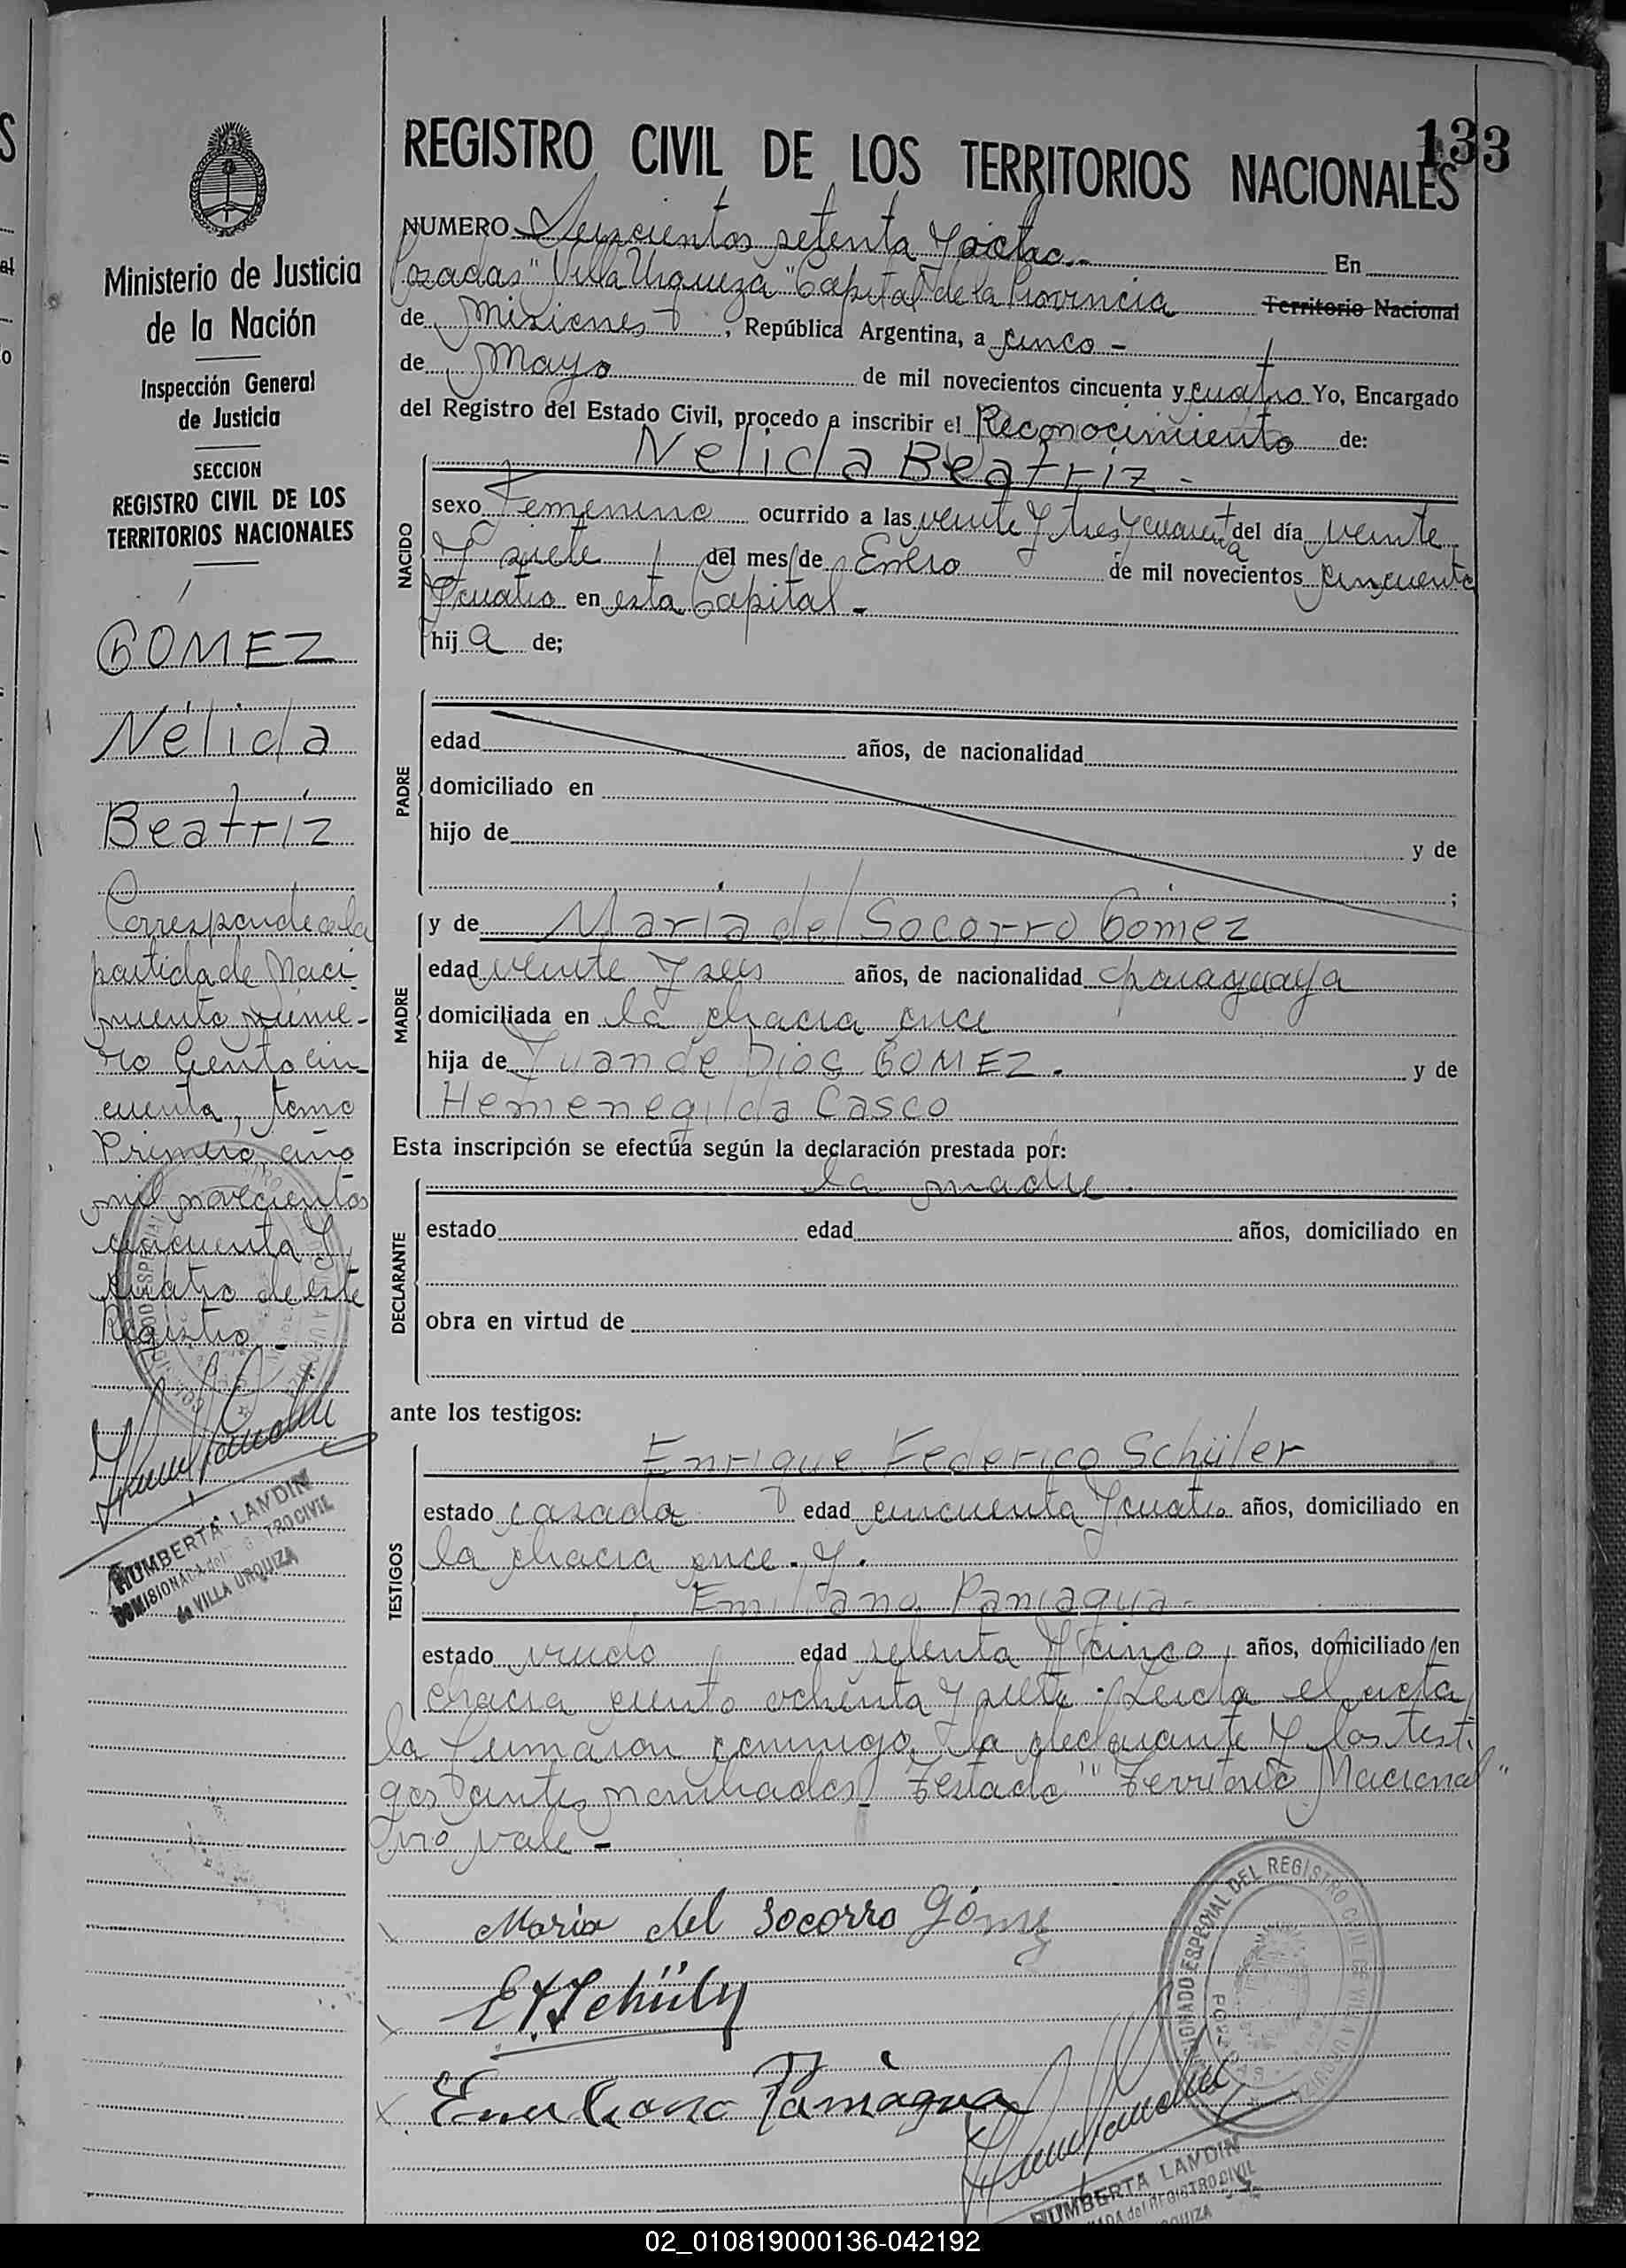 133
REGISTRO CIVIL DE LOS TERRITORIOS NACIONALES
Ministerio de Justicia
de la Nación
Inspección General
de Justicia
SECCION
REGISTRO CIVIL DE LOS
TERRITORIOS NACIONALES
GOMEZ
Nélida
Beatríz
Corresponde a la
partida de Naci-
miento núme-
ro Ciento cin-
cuenta, tomo
Primero, año
mil novecientos
cincuenta y
cuatro de este
Registro.-
HUMBERTA LANDIN
COMISIONADA del REGISTRO CIVIL
de VILLA URQUIZA
NUMERO Seiscientos setenta y ocho.- En
Posadas "Villa Urquiza" Capital de la Provincia Territorio Nacional
de Misiones, República Argentina, a cinco -
de Mayo de mil novecientos cincuenta y cuatro Yo, Encargado
del Registro del Estado Civil, procedo a inscribir el Reconocimiento de:
NACIDO
Nelida Beatriz -
sexo Femenino ocurrido a las veinte y tres y cuarenta del día veinte
y siete del mes de Enero de mil novecientos cincuenta
y cuatro en esta Capital -
hij a de;
PADRE
edad años, de nacionalidad
domiciliado en
hijo de y de
;
MADRE
y de María del Socorro Gómez
edad veinte y seis años, de nacionalidad paraguaya
domiciliada en la chacra once
hija de Juan de Dios GOMEZ. y de
Hemenegilda Casco
Esta inscripción se efectúa según la declaración prestada por:
DECLARANTE
la madre.
estado edad años, domiciliado en
obra en virtud de
ante los testigos:
TESTIGOS
Enrique Federico Schüler
estado casado edad cincuenta y cuatro años, domiciliado en
la chacra once. y.
Emiliano Paniagua -
estado viudo edad setenta y cinco, años, domiciliado en
chacra ciento ochenta y siete. Leida el acta,
la firmaron conmigo, la declarante y los testi-
gos antes nombrados. Testado "Territorio Nacional"
no vale -
María del Socorro Gómez
E F Schüler
Emiliano Paniagua
COMISIONADO ESPECIAL DEL REGISTRO CIVIL DE VILLA URQUIZA
HUMBERTA LANDIN
del REGISTRO CIVIL
02_010819000136-042192